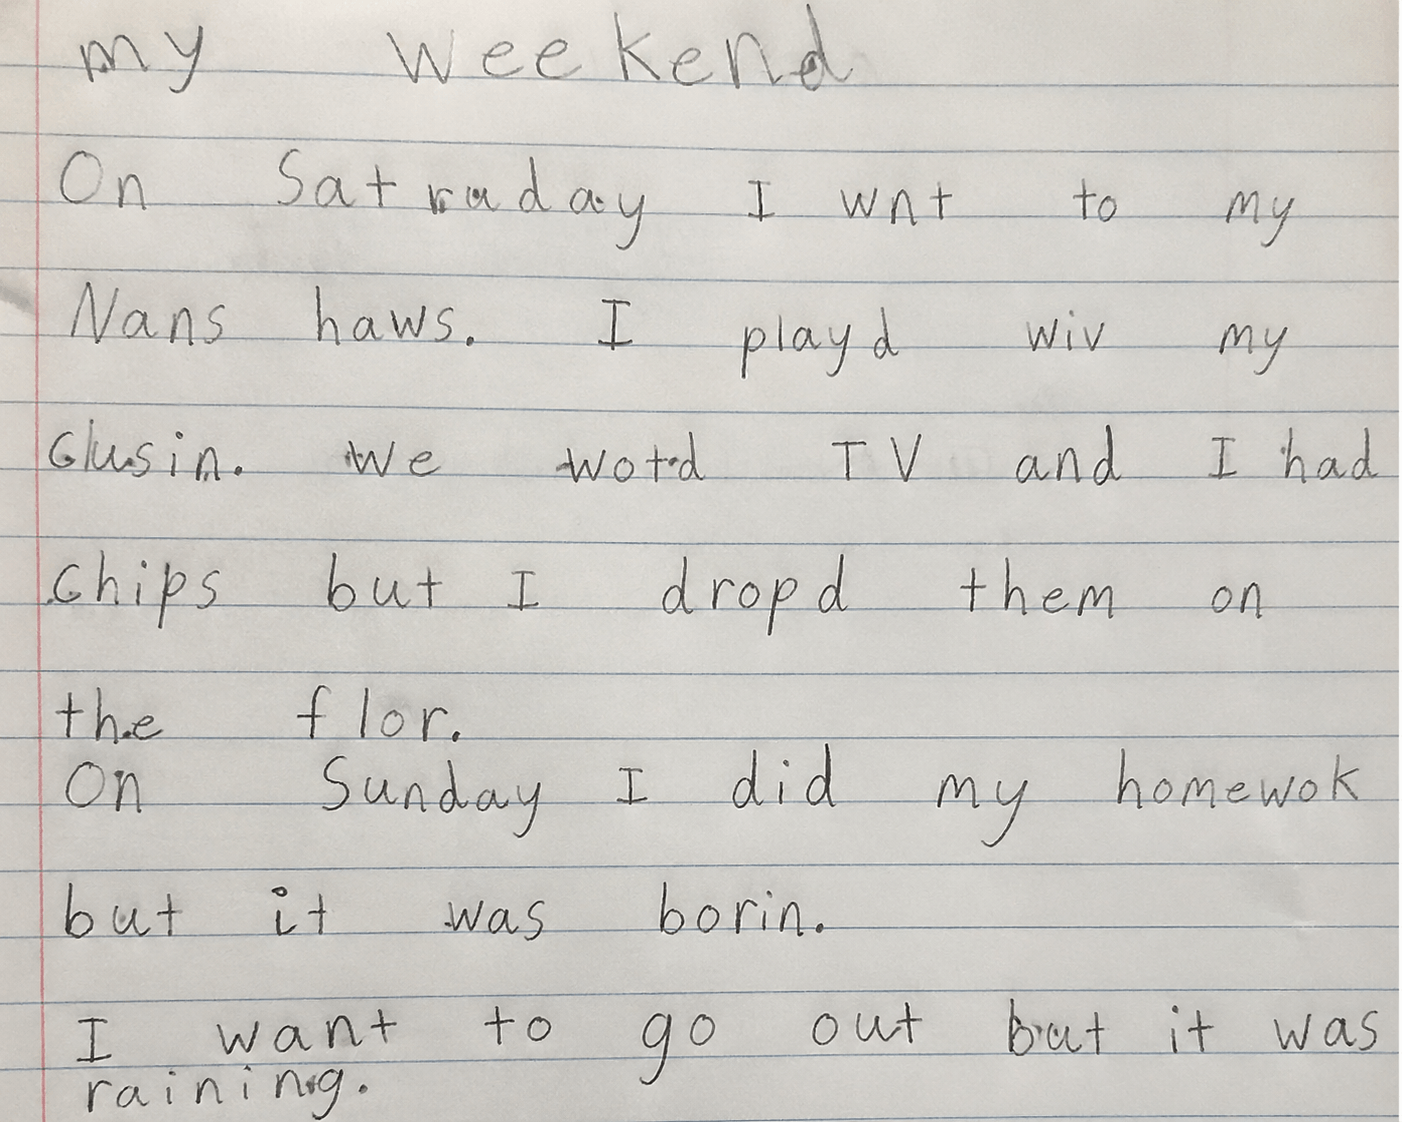 my weekend
On Satraday I wnt to my
Nans haws. I playd wiv my
clusin. We wotd TV and I had
chips but I dropd them on
the flor.
On Sunday I did my homewok
but it was borin.
I want to go out but it was
raining.